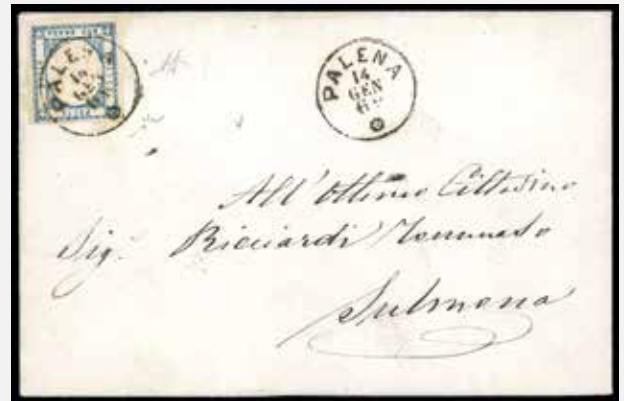 PALENA
14
GEN
PALENA
14
GEN
All'Ottimo Cittadino
Sig. Ricciardi Tommaso
Sulmona